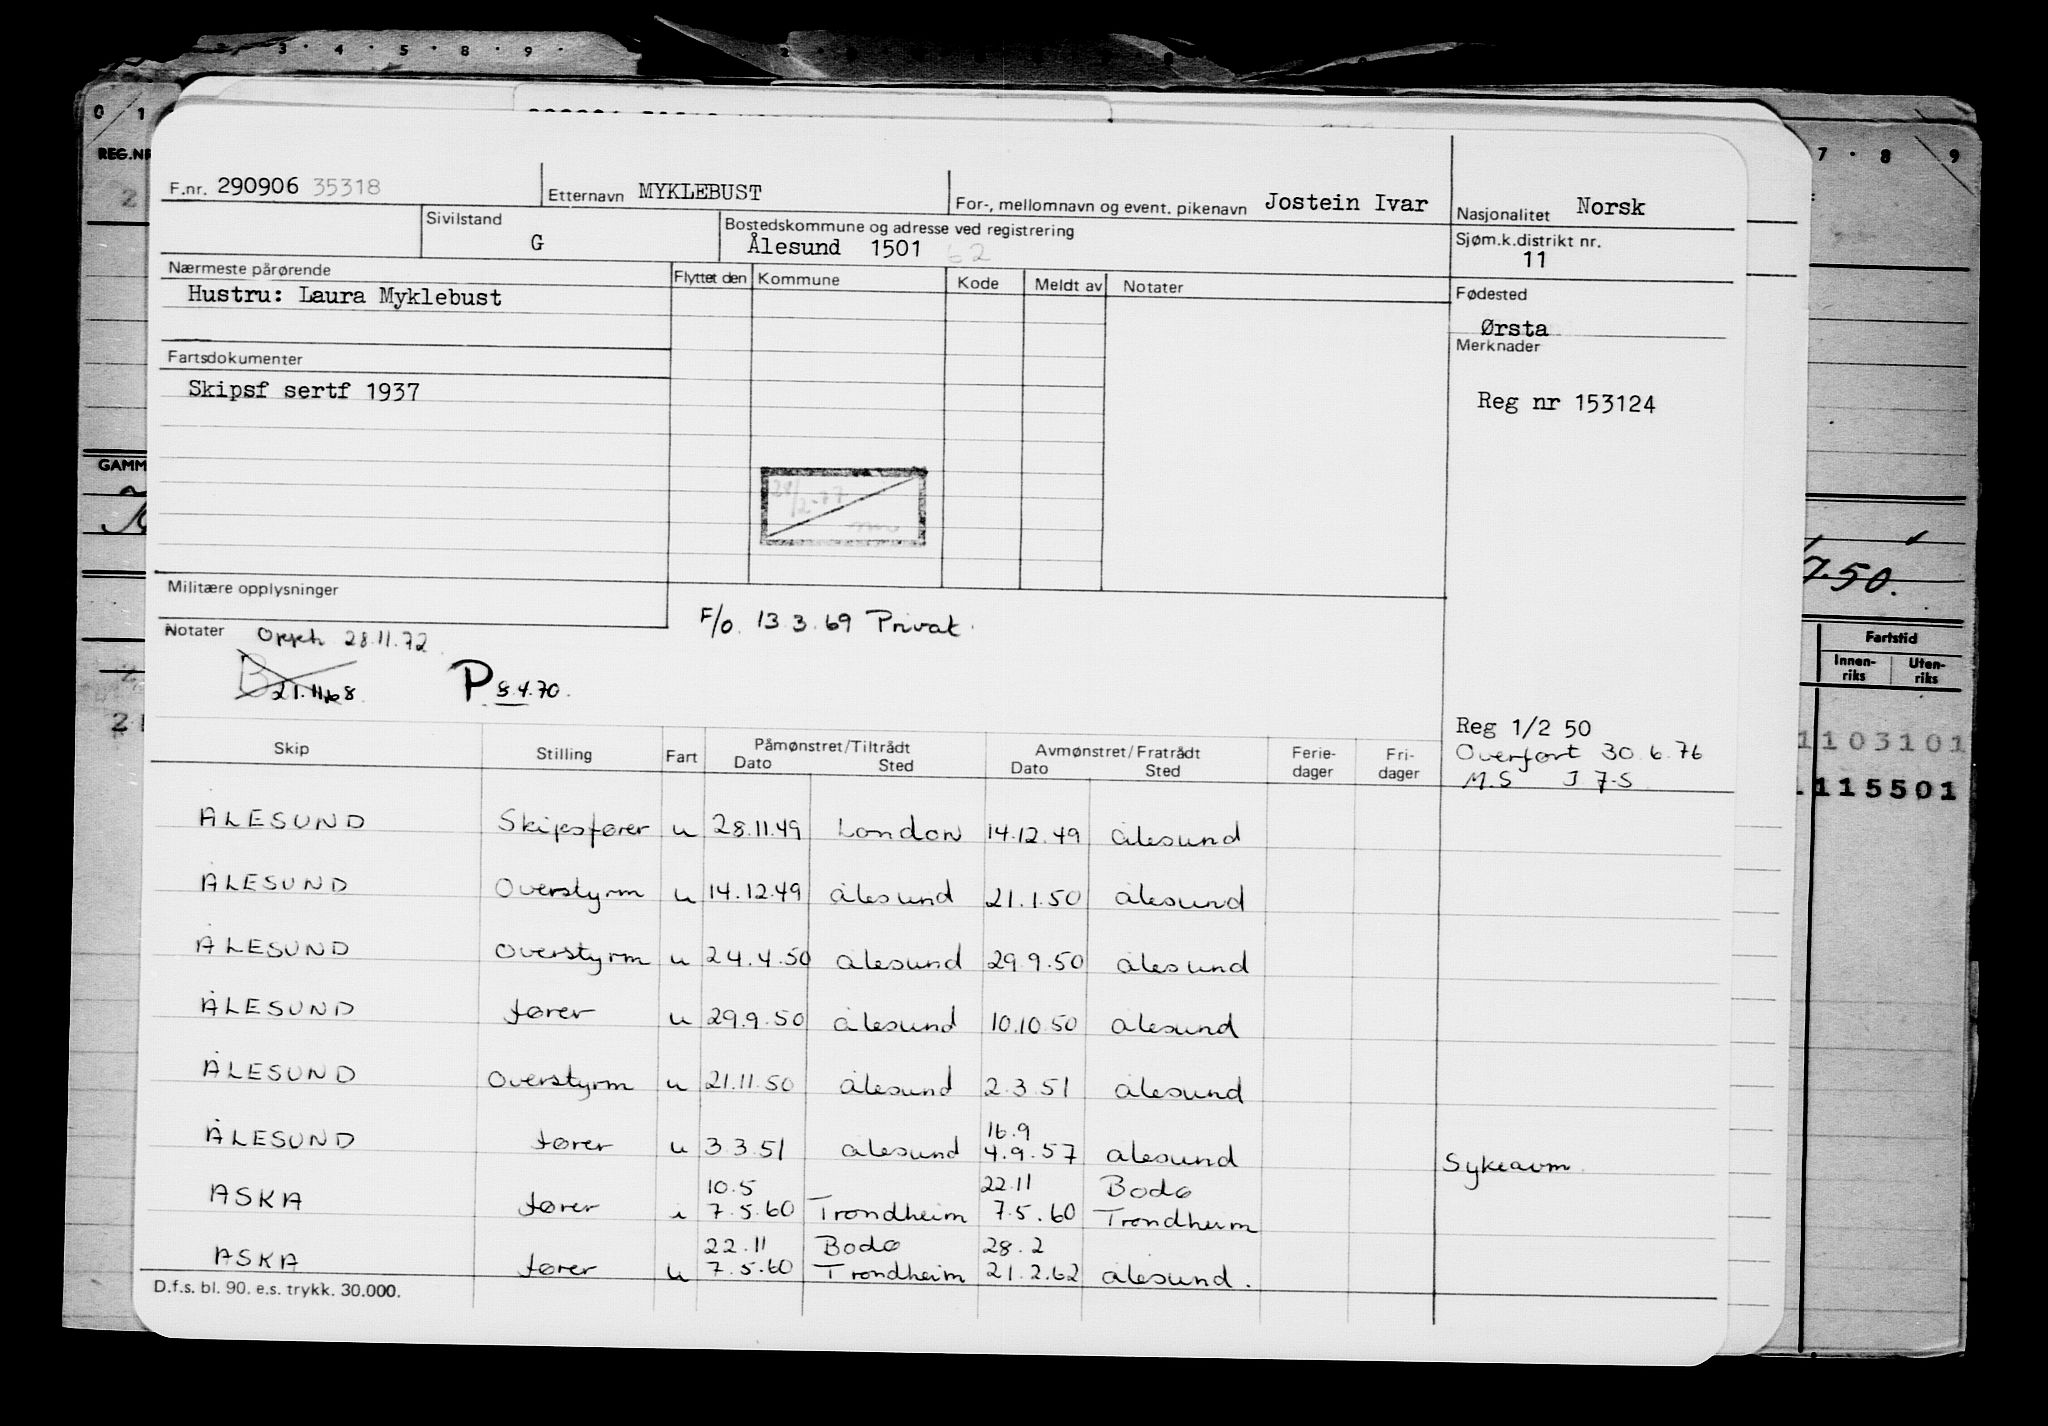 3 · 4 · 5 · 8 · 9 ·
0 1
7 · 8 9
REG.NR
F.nr. 290906 35318 Etternavn MYKLEBUST For-, mellomnavn og event. pikenavn Jostein Ivar Nasjonalitet Norsk
Sivilstand G Bostedskommune og adresse ved registrering Sjøm.k.distrikt nr.
Ålesund 1501 62 11
Nærmeste pårørende Flyttet den Kommune Kode Meldt av Notater Fødested
Hustru: Laura Myklebust
Ørsta
Fartsdokumenter Merknader
Skipsf sertf 1937 Reg nr 153124
GAMM
28/2-77
7.50.
Militære opplysninger
F/o. 13.3.69 Privat.
Notater Opph 28.11.72.
B 21.11.68. P 8.4.70.
Fartstid
Innen-riks Uten-riks
Reg 1/2 50
Overført 30.6.76
M.S J 7-S
1103101
115501
Skip Stilling Fart Påmønstret/Tiltrådt Avmønstret/Fratrådt Ferie-dager Fri-dager
Dato Sted Dato Sted
ÅLESUND Skipsfører u 28.11.49 London 14.12.49 Ålesund
ÅLESUND Overstyrm u 14.12.49 Ålesund 21.1.50 Ålesund
ÅLESUND Overstyrm u 24.4.50 Ålesund 29.9.50 Ålesund
ÅLESUND fører u 29.9.50 Ålesund 10.10.50 Ålesund
ÅLESUND Overstyrm u 21.11.50 Ålesund 2.3.51 Ålesund
16.9
ÅLESUND fører u 3.3.51 Ålesund 4.9.57 Ålesund Sykeavm.
10.5 22.11 Bodø
ASKA fører i 7.5.60 Trondheim 7.5.60 Trondheim
22.11 Bodø 28.2
ASKA fører u 7.5.60 Trondheim 21.2.62 Ålesund.
D.f.s. bl. 90. e.s. trykk. 30.000.